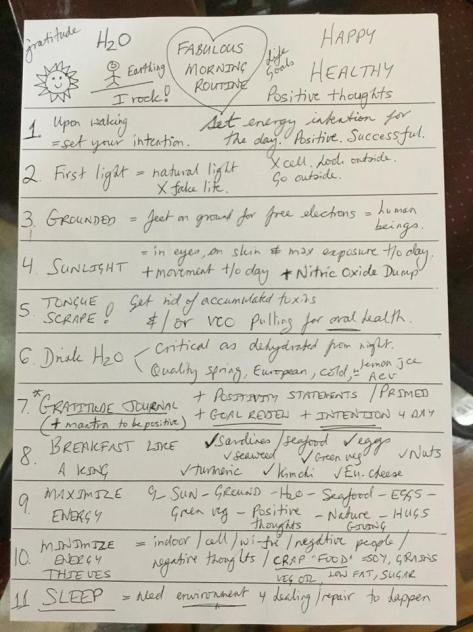 gratitude
H2O
FABULOUS
MORNING
ROUTINE
Life
Goals
HAPPY
HEALTHY
Positive thoughts
Earthing
I rock!
1. Upon waking
= set your intention.
Set energy intention for
the day. Positive. Successful.
2. First light = natural light
X fake lite.
X cell. Look outside.
Go outside.
3. GROUNDED = feet on ground for free electrons = human
beings.
4. SUNLIGHT = in eyes, on skin & max exposure t/o day.
+ movement t/o day + Nitric Oxide Dump
5. TONGUE
SCRAPE!
Get rid of accumulated toxins
&/or VCO Pulling for oral health.
6. Drink H2O
Critical as dehydrated from night.
Quality spring, European, cold, = lemon jce
ACV
7. *GRATITUDE JOURNAL
(+ mantra to be positive)
+ POSITIVITY STATEMENTS / PRIMED
+ GOAL REVIEW + INTENTION 4 DAY
8. BREAKFAST LIKE
A KING
✓Sardines/seafood ✓eggs
✓seaweed ✓Green veg ✓Nuts
✓turmeric ✓kimchi ✓Eu. cheese
9. MAXIMIZE
ENERGY
SUN - GROUND - H2O - Seafood - EGGS -
Green veg - Positive - Nature - HUGS
thoughts GIVING
10. MINIMIZE
ENERGY
THIEVES
= indoor/cell/wi-fi/negative people/
negative thoughts/CRAP "FOOD" = SOY, GRAINS
VEG OIL, LOW FAT, SUGAR
11 SLEEP = need environment 4 healing/repair to happen